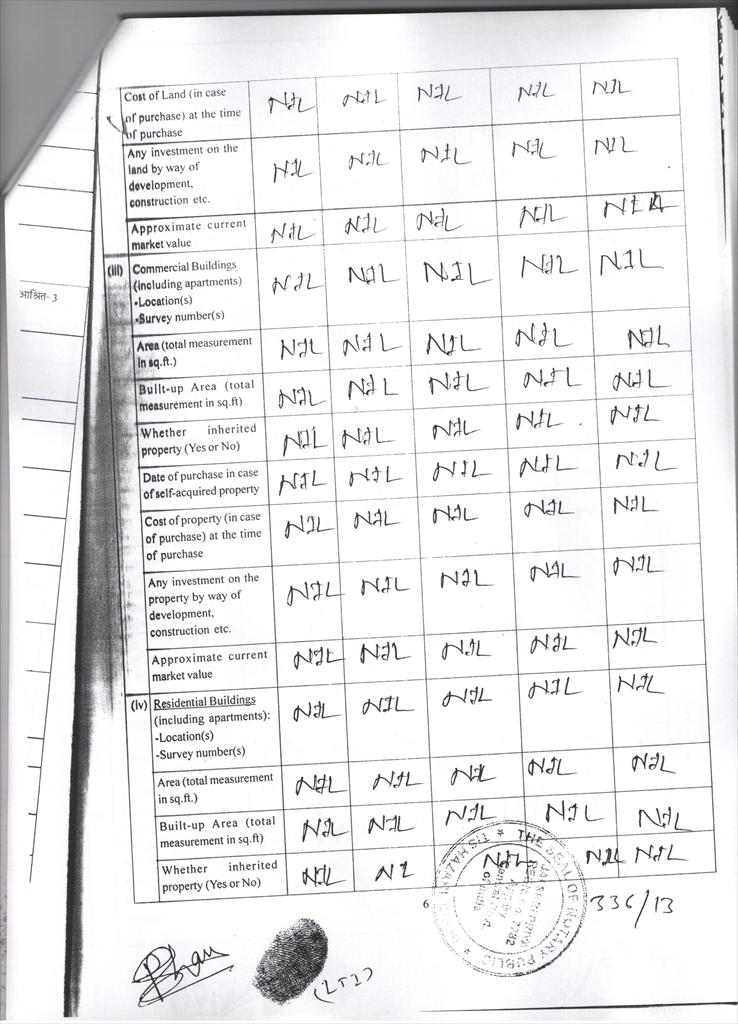 Cost of Land (in case NIL NIL NIL NIL NIL
of purchase) at the time
of purchase
Any investment on the NIL NIL NIL NIL NIL
land by way of
development,
construction etc.
Approximate current NIL NIL NIL NIL
market value
(iii) Commercial Buildings NIL NIL NIL NIL NIL
(including apartments)
-Location(s)
-Survey number(s)
आश्रित-3
Area (total measurement NIL NIL NIL NIL NIL
in sq.ft.)
Built-up Area (total NIL NIL NIL NIL NIL
measurement in sq.ft)
Whether inherited NIL NIL NIL NIL NIL
property (Yes or No)
Date of purchase in case NIL NIL NIL NIL NIL
of self-acquired property
Cost of property (in case NIL NIL NIL NIL NIL
of purchase) at the time
of purchase
Any investment on the NIL NIL NIL NIL NIL
property by way of
development,
construction etc.
Approximate current NIL NIL NIL NIL NIL
market value
(iv) Residential Buildings NIL NIL NIL NIL NIL
(including apartments):
-Location(s)
-Survey number(s)
Area (total measurement NIL NIL NIL NIL NIL
in sq.ft.)
Built-up Area (total NIL NIL NIL NIL NIL
measurement in sq.ft)
Whether inherited NIL NI NIL NIL NIL
property (Yes or No)
6
THE SEAL OF NOTARY PUBLIC
TIS HAZARI
336/13
(LTI)